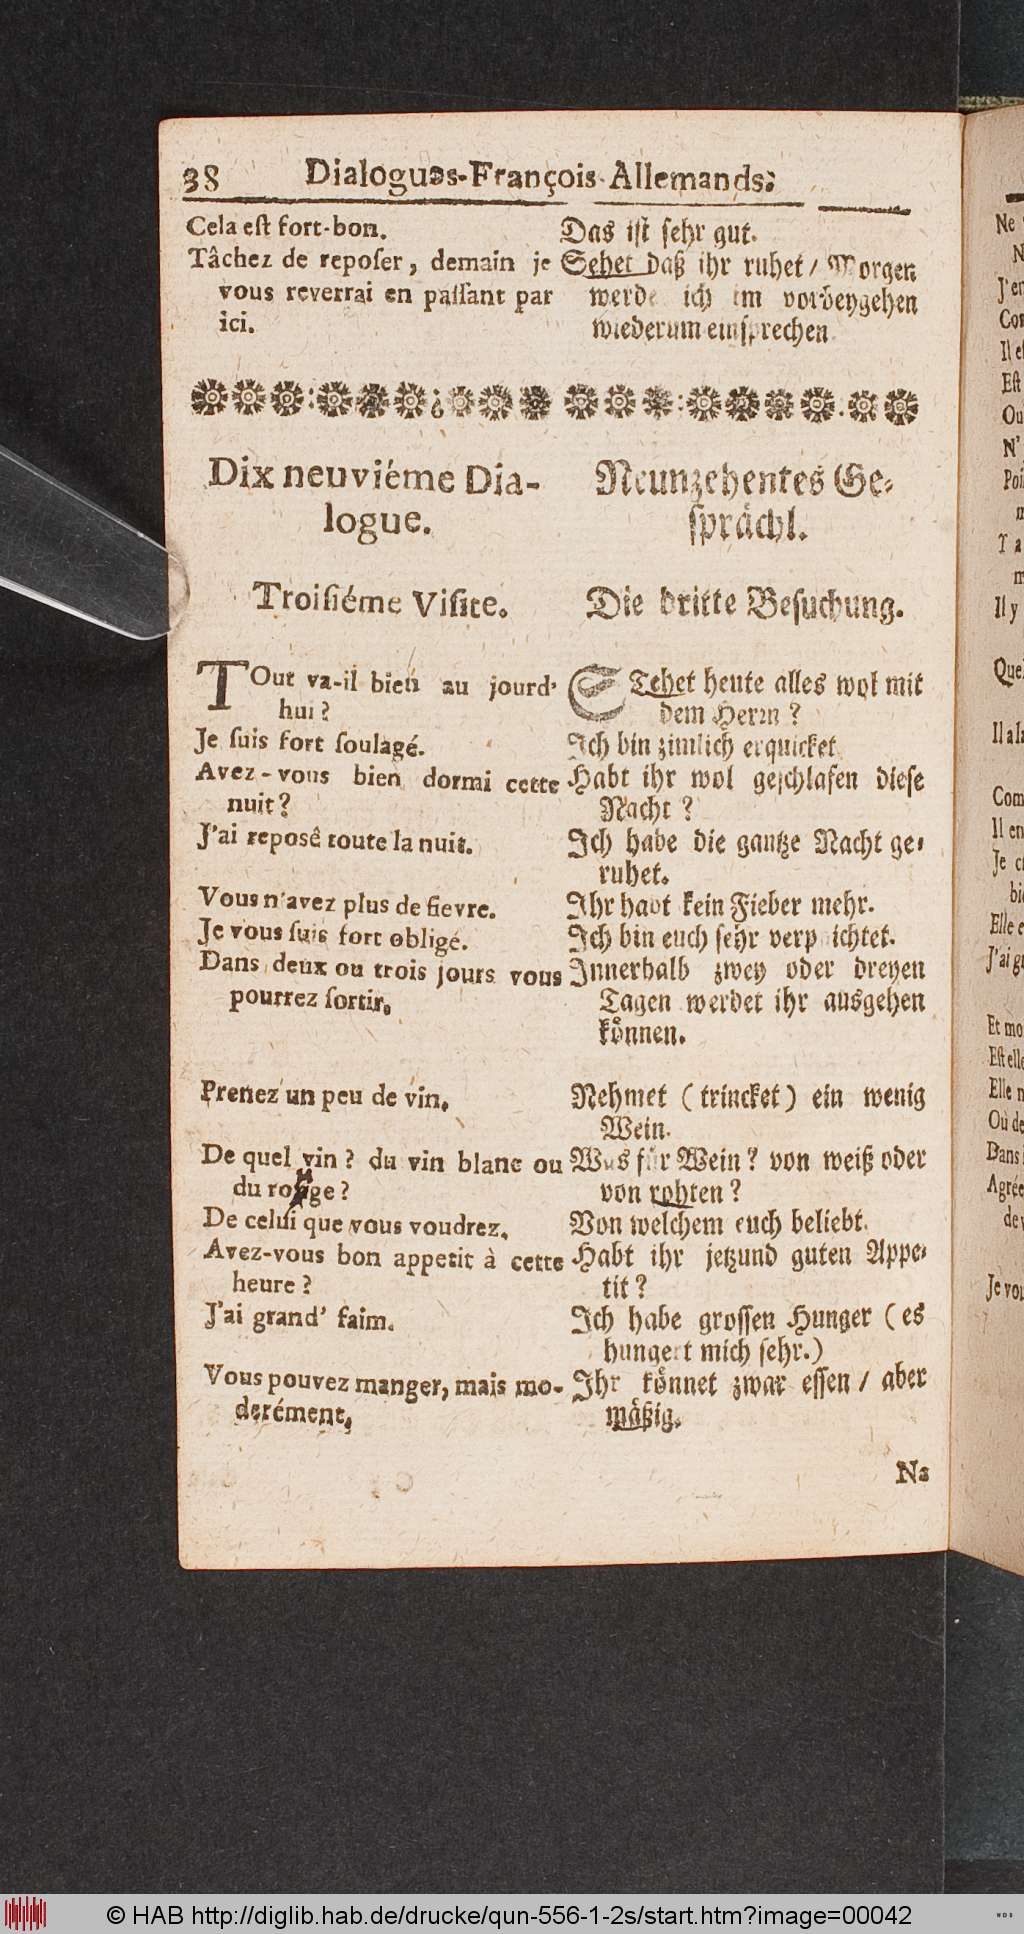 38 Dialogues-François-Allemands.
Cela est fort-bon.
Tâchez de reposer, demain je
vous reverrai en passant par
ici.
Das ist sehr gut.
Sehet daß ihr ruhet / Morgen
werde ich im vorbeygehen
wiederum einsprechen
Dix neuviéme Dia-
logue.
Troisiéme Visite.
TOut va-il bien au jourd'
hui?
Je suis fort soulagé.
Avez-vous bien dormi cette
nuit?
J'ai reposê toute la nuit.
Vous n'avez plus de fievre.
Je vous suis fort obligé.
Dans deux ou trois jours vous
pourrez sortir.
Prenez un peu de vin.
De quel vin? du vin blanc ou
du rouge?
De celui que vous voudrez.
Avez-vous bon appetit à cette
heure?
J'ai grand' faim.
Vous pouvez manger, mais mo-
derément.
Neunzehentes Ge-
sprächl.
Die dritte Besuchung.
STehet heute alles wol mit
dem Herrn?
Ich bin zimlich erquicket
Habt ihr wol geschlafen diese
Nacht?
Ich habe die gantze Nacht ge-
ruhet.
Ihr habt kein Fieber mehr.
Ich bin euch sehr verpflichtet.
Innerhalb zwey oder dreyen
Tagen werdet ihr ausgehen
können.
Nehmet (trincket) ein wenig
Wein.
Was für Wein? von weiß oder
von rohten?
Von welchem euch beliebt.
Habt ihr jetzund guten Appe-
tit?
Ich habe grossen Hunger (es
hungert mich sehr.)
Ihr könnet zwar essen / aber
mäßig.
Ne
J'en
Il es
Est
Ou
N'
Il y
Il a la
Il en
Je cr
bie
Elle e
J'ai gr
Et mo
Est elle
Elle n
Où de
Dans
Agrée
de v
Je vou
© HAB http://diglib.hab.de/drucke/qun-556-1-2s/start.htm?image=00042